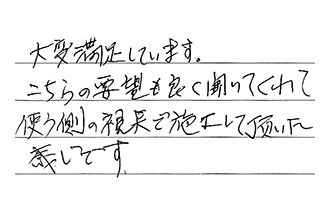 大変満足しています。
こちらの要望も良く聞いてくれて
使う側の視点で施工して頂いた
感じです。